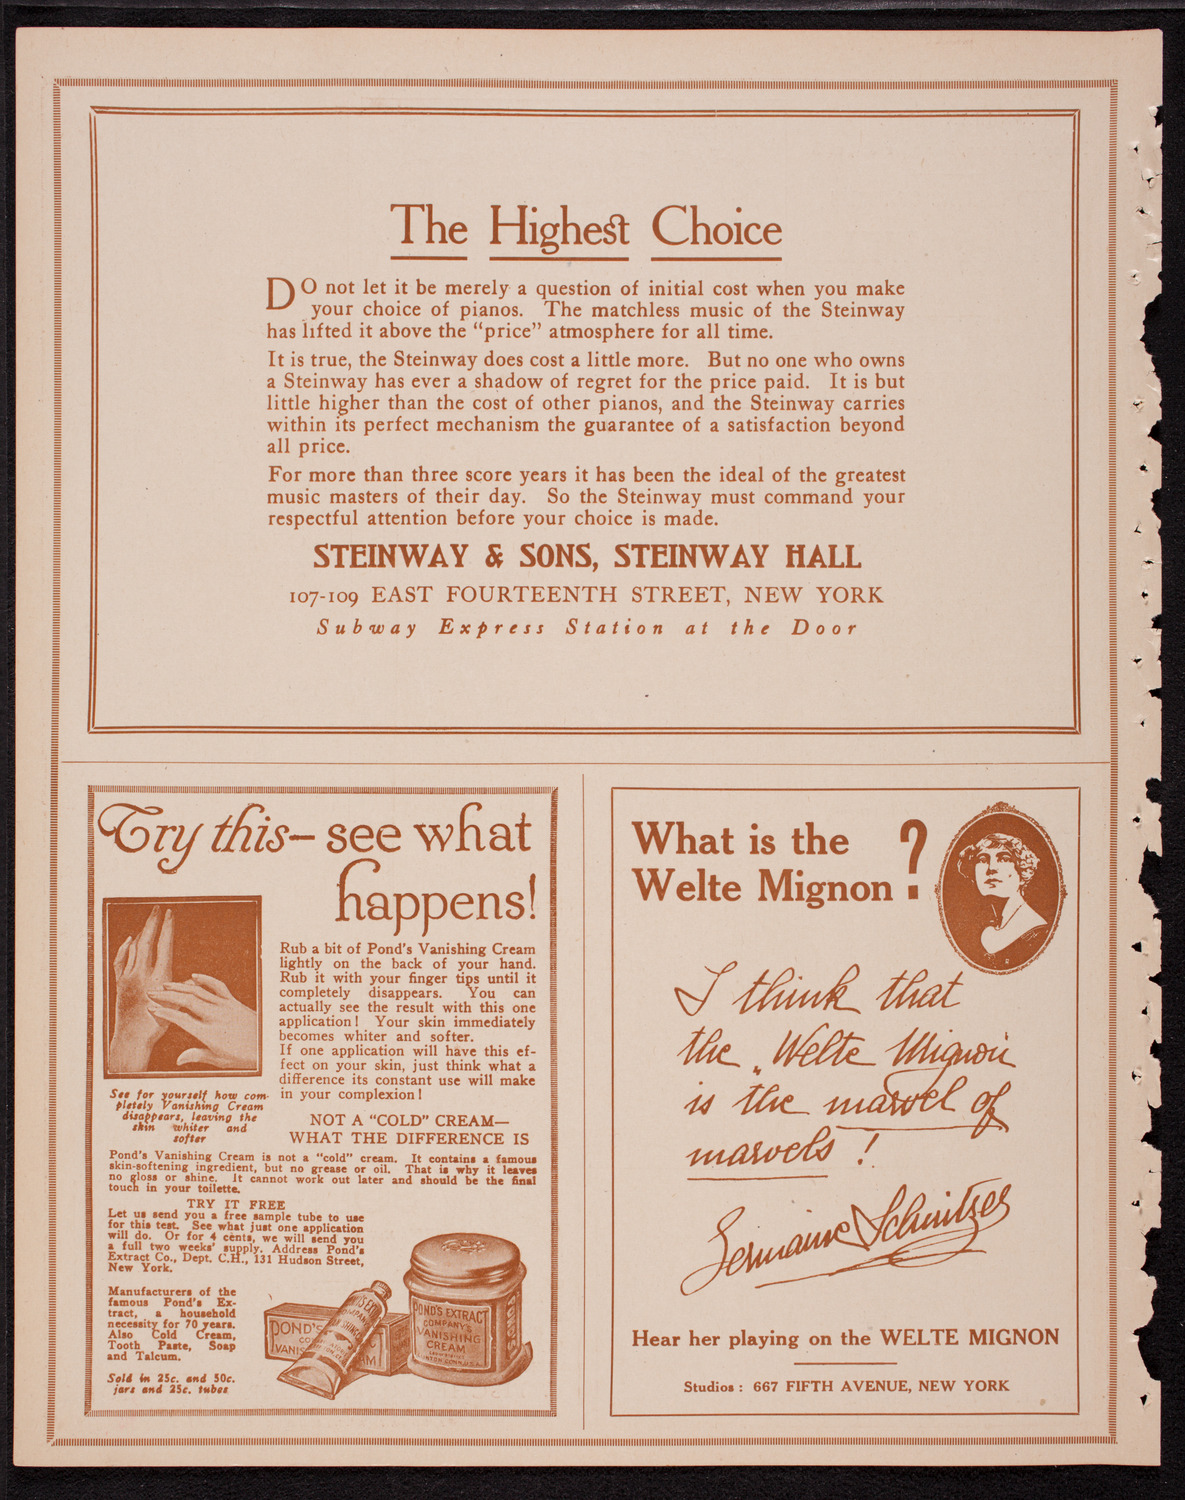 The Highest Choice
DO not let it be merely a question of initial cost when you make
your choice of pianos. The matchless music of the Steinway
has lifted it above the "price" atmosphere for all time.
It is true, the Steinway does cost a little more. But no one who owns
a Steinway has ever a shadow of regret for the price paid. It is but
little higher than the cost of other pianos, and the Steinway carries
within its perfect mechanism the guarantee of a satisfaction beyond
all price.
For more than three score years it has been the ideal of the greatest
music masters of their day. So the Steinway must command your
respectful attention before your choice is made.
STEINWAY & SONS, STEINWAY HALL
107-109 EAST FOURTEENTH STREET, NEW YORK
Subway Express Station at the Door
Try this—see what
happens!
Rub a bit of Pond's Vanishing Cream
lightly on the back of your hand.
Rub it with your finger tips until it
completely disappears. You can
actually see the result with this one
application! Your skin immediately
becomes whiter and softer.
If one application will have this ef-
fect on your skin, just think what a
difference its constant use will make
in your complexion!
See for yourself how com-
pletely Vanishing Cream
disappears, leaving the
skin whiter and
softer
NOT A "COLD" CREAM—
WHAT THE DIFFERENCE IS
Pond's Vanishing Cream is not a "cold" cream. It contains a famous
skin-softening ingredient, but no grease or oil. That is why it leaves
no gloss or shine. It cannot work out later and should be the final
touch in your toilette.
TRY IT FREE
Let us send you a free sample tube to use
for this test. See what just one application
will do. Or for 4 cents, we will send you
a full two weeks' supply. Address Pond's
Extract Co., Dept. C.H., 131 Hudson Street,
New York.
Manufacturers of the
famous Pond's Ex-
tract, a household
necessity for 70 years.
Also Cold Cream,
Tooth Paste, Soap
and Talcum.
Sold in 25c. and 50c.
jars and 25c. tubes
POND'S
VANIS
AM
POND'S EXTRACT
COMPANY'S
VANISHING
CREAM
What is the
Welte Mignon?
I think that
the „Welte Mignon
is the marvel of
marvels!
Germaine Schnitzer
Hear her playing on the WELTE MIGNON
Studios: 667 FIFTH AVENUE, NEW YORK